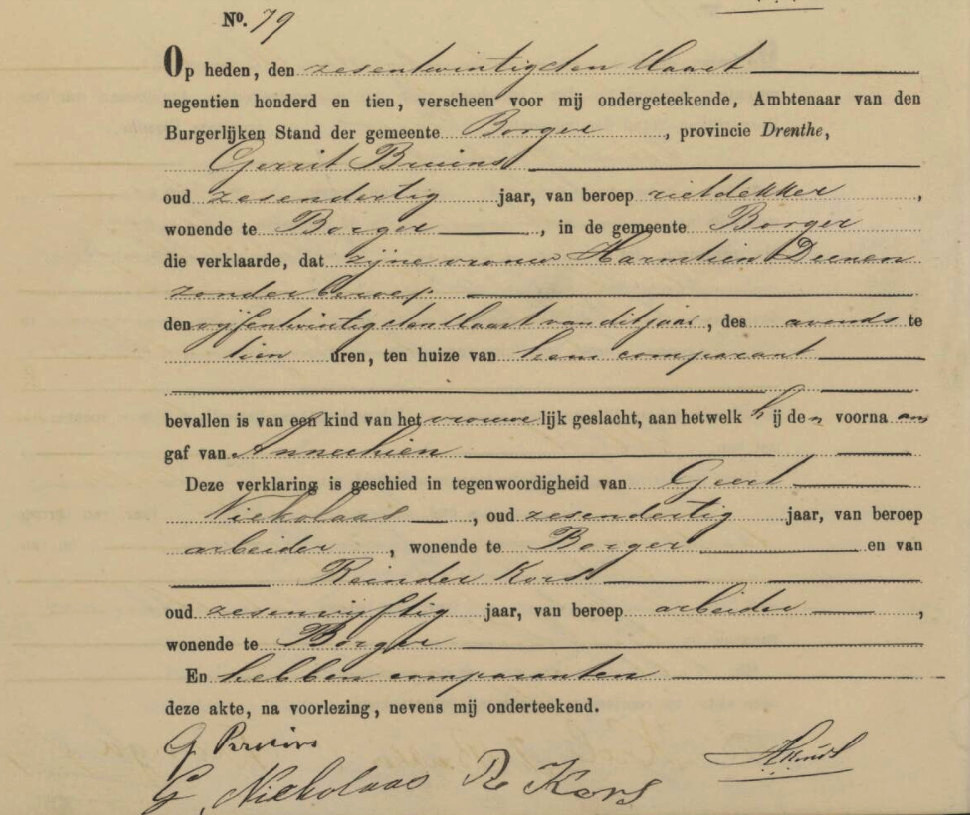 No. 79
Op heden, den zesentwintigsten Maart
negentien honderd en tien, verscheen voor mij ondergeteekende, Ambtenaar van den
Burgerlijken Stand der gemeente Borger, provincie Drenthe,
Gerrit Bruins
oud zesendertig jaar, van beroep rietdekker,
wonende te Borger, in de gemeente Borger
die verklaarde, dat zijne vrouw Harmtien Deenen
zonder beroep
den vijfentwintigsten Maart van dit jaar, des avonds te
tien uren, ten huize van hem comparant
bevallen is van een kind van het vrouwelijk geslacht, aan hetwelk hij den voornaam
gaf van Annechien
Deze verklaring is geschied in tegenwoordigheid van Geert
Niekolaas, oud zesendertig jaar, van beroep
arbeider, wonende te Borger en van
Reinder Kors
oud zesenvijftig jaar, van beroep arbeider,
wonende te Borger
En hebben comparanten
deze akte, na voorlezing, nevens mij onderteekend.
G Bruins
G, Niekolaas R Kors